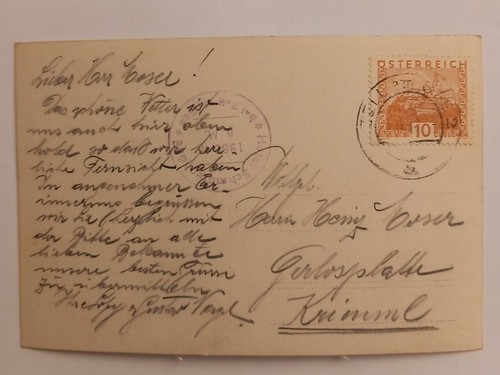 Lieber Herr Moser!
Das schöne Wetter ist
uns auch hier oben
hold so daß wir herr
liche Fernsicht haben
In angenehmer Er
innerung begrüssen
wir Sie herzlich mit
der Bitte an alle
lieben Bekannte
unsere besten Grüsse
zu übermitteln
Gustav
ÖSTERREICH
10
Wohlgb.
Herrn Heinz Moser
Gerlosplatte
Krimml